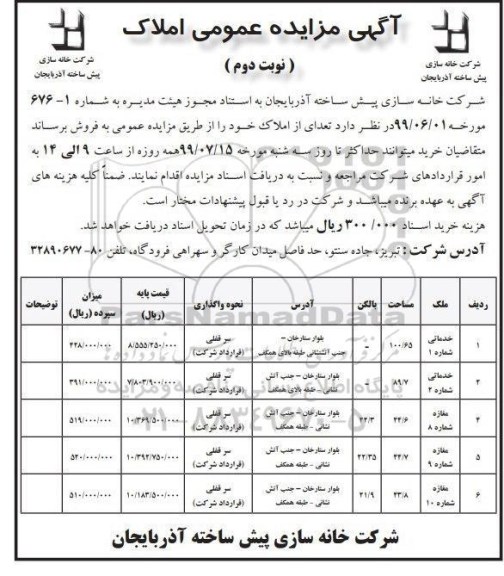 آگهی مزایده عمومی املاک
( نوبت دوم )
شرکت خانه سازی
پیش ساخته آذربایجان
شرکت خانه سازی
پیش ساخته آذربایجان
شرکت خانه سازی پیش ساخته آذربایجان به استناد مجوز هیئت مدیره به شماره ۱- ۶۷۶
مورخه ۹۹/۰۶/۰۱ در نظر دارد تعدای از املاک خود را از طریق مزایده عمومی به فروش برساند
متقاضیان خرید میتوانند حداکثر تا روز سه شنبه مورخه ۹۹/۰۷/۱۵ همه روزه از ساعت ۹ الی ۱۴ به
امور قراردادهای شرکت مراجعه و نسبت به دریافت اسناد مزایده اقدام نمایند. ضمناً کلیه هزینه های
آگهی به عهده برنده میباشد و شرکت در رد یا قبول پیشنهادات مختار است.
هزینه خرید اسناد ۳۰۰/۰۰۰ ریال میباشد که در زمان تحویل اسناد دریافت خواهد شد.
آدرس شرکت : تبریز، جاده سنتو، حد فاصل میدان کارگر و سهراهی فرودگاه، تلفن ۸۰-۳۲۸۹۰۶۷۷
ردیف ملک مساحت بالکن آدرس نحوه واگذاری قیمت پایه (ریال) میزان سپرده (ریال) توضیحات
۱ خدماتی شماره ۱ ۱۰۰/۶۵ - بلوار ستارخان – جنب آتشنشانی طبقه بالای همکف سر قفلی (قرارداد شرکت) ۸/۵۵۵/۲۵۰/۰۰۰ ۴۲۸/۰۰۰/۰۰۰
۲ خدماتی شماره ۲ ۸۹/۷ - بلوار ستارخان – جنب آتش نشانی - طبقه بالای همکف سر قفلی (قرارداد شرکت) ۷/۸۰۳/۹۰۰/۰۰۰ ۳۹۱/۰۰۰/۰۰۰
۴ مغازه شماره ۸ ۴۴/۶ ۲۲/۳ بلوار ستارخان – جنب آتش نشانی - طبقه همکف سر قفلی (قرارداد شرکت) ۱۰/۳۶۹/۵۰۰/۰۰۰ ۵۱۹/۰۰۰/۰۰۰
۵ مغازه شماره ۹ ۴۴/۷ ۲۲/۳۵ بلوار ستارخان – جنب آتش نشانی - طبقه همکف سر قفلی (قرارداد شرکت) ۱۰/۳۹۲/۷۵۰/۰۰۰ ۵۲۰/۰۰۰/۰۰۰
۶ مغازه شماره ۱۰ ۴۳/۸ ۲۱/۹ بلوار ستارخان – جنب آتش نشانی - طبقه همکف سر قفلی (قرارداد شرکت) ۱۰/۱۸۳/۵۰۰/۰۰۰ ۵۱۰/۰۰۰/۰۰۰
ParsNamadData
پایگاه اطلاع رسانی مناقصه و مزایده
۰۲۱-۸۸۳۴۹۶۷۰-۵
شرکت خانه سازی پیش ساخته آذربایجان